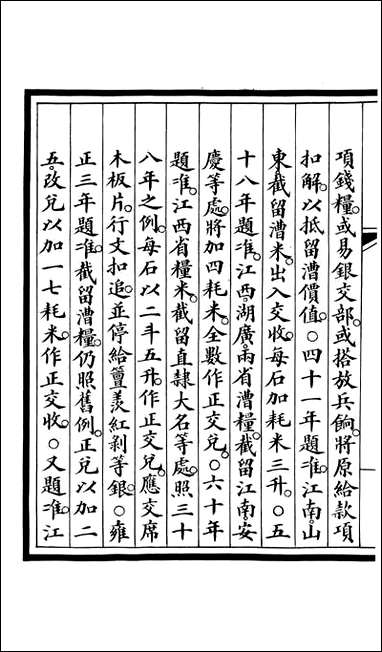 項錢糧。或易銀交部。或搭放兵餉。將原給款項
扣解。以抵留漕價值。○四十一年題准。江南。山
東。截留漕米。出入交收。每石加耗米三升。○五
十八年題准。江西。湖廣。兩省漕糧。截留江南。安
慶等處。將加四耗米。全數作正交兌。○六十年
題准。江西省糧米。截留直隸大名等處。照三十
八年之例。每石以二斗五升。作正交兌。應交席
木板片。行文扣追。並停給𥴦羨紅剥等銀。○雍
正三年題准。截留漕糧。仍照舊例。正兌以加二
五。改兌以加一七耗米。作正交收。○又題准。江